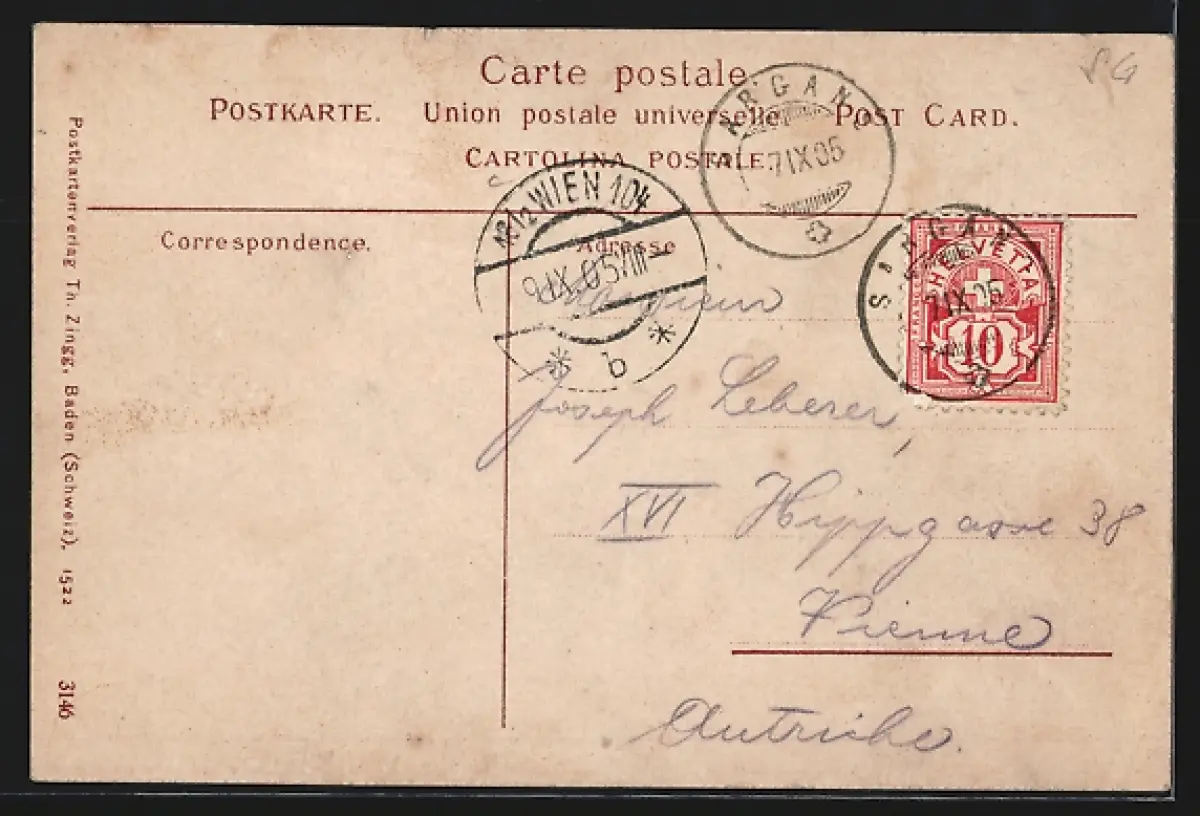 Carte postale.
POSTKARTE. Union postale universelle. POST CARD.
CARTOLINA POSTALE.
SARGANS
7 IX 05
18½ WIEN 104
9 IX 05
* b *
SARGANS
7 IX 05
HELVETIA
FRANCO
10
Correspondence.
Adresse
Joseph Leberer,
XVI Hippgasse 38
Vienne
Autriche.
Postkartenverlag Th. Zingg, Baden (Schweiz). 1522
3146